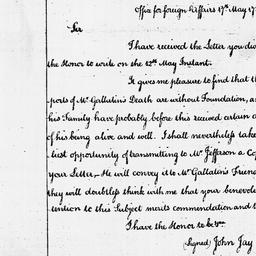 Office for foreign Affairs 17th. May 17
Sir
I have received the Letter you did
the Honor to write on the 12th May Instant.
It gives me pleasure to find that th
ports of Mr Gallatin's Death are without Foundation, a
his Family have probably before this received certain a
of his being alive and well. I shall nevertheless take
first opportunity of transmitting to Mr Jefferson a Cop
your Letter, He will convey it to Mr Gallatin's Friend
they will doubtless think with me that your benevol
tention to this Subject merits commendation and t
I have the Honor to be &c.
(signed) John Jay